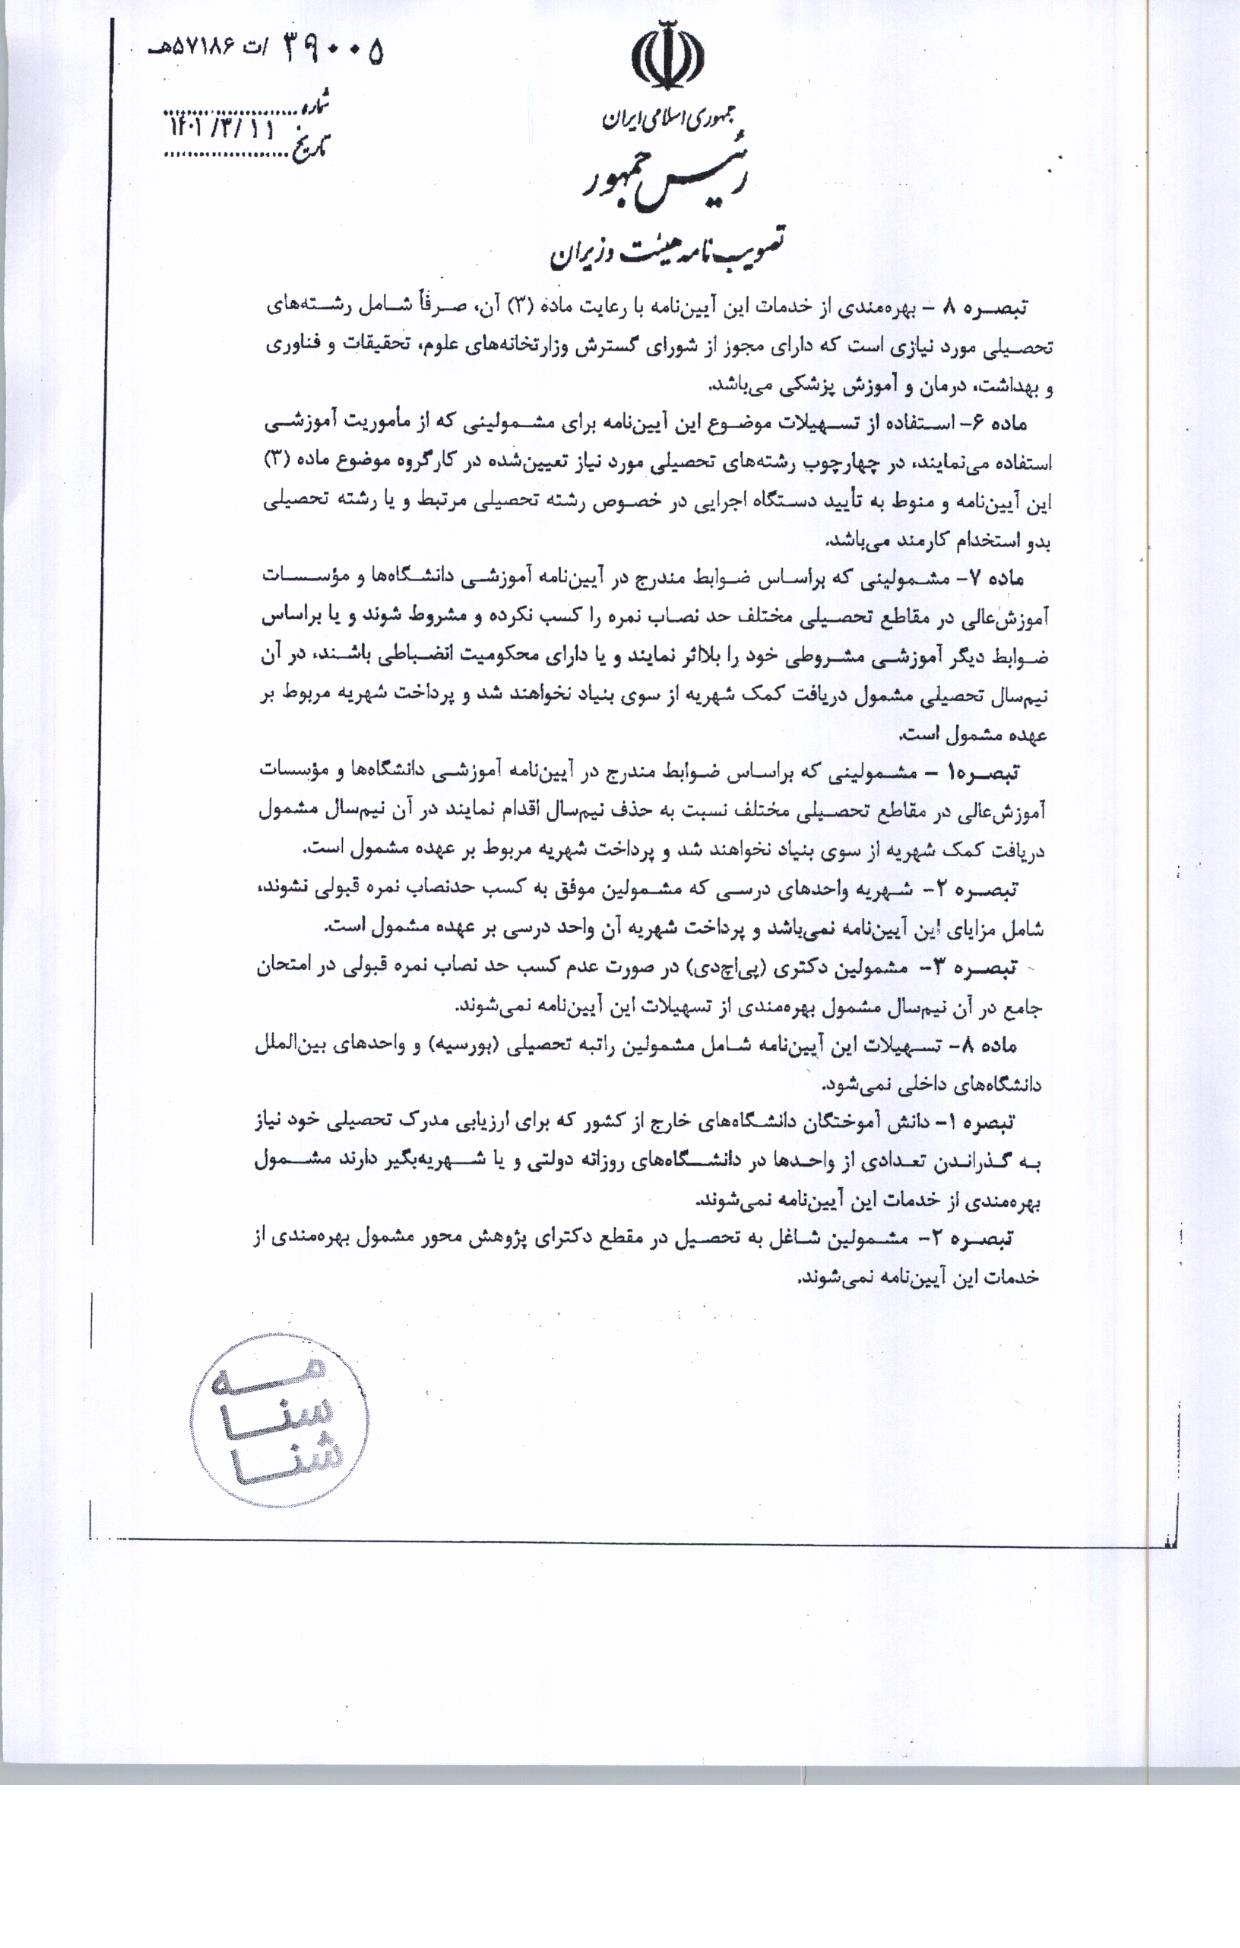 ۳۹۰۰۵ /ت ۵۷۱۸۶هـ
شماره
۱۴۰۱/۳/۱۱
تاریخ
جمهوری اسلامی ایران
رئیس جمهور
تصویب نامه هیئت وزیران
تبصره ۸ – بهره‌مندی از خدمات این آیین‌نامه با رعایت ماده (۳) آن، صرفاً شامل رشته‌های
تحصیلی مورد نیازی است که دارای مجوز از شورای گسترش وزارتخانه‌های علوم، تحقیقات و فناوری
و بهداشت، درمان و آموزش پزشکی می‌باشد.
ماده ۶- استفاده از تسهیلات موضوع این آیین‌نامه برای مشمولینی که از مأموریت آموزشی
استفاده می‌نمایند، در چهارچوب رشته‌های تحصیلی مورد نیاز تعیین‌شده در کارگروه موضوع ماده (۳)
این آیین‌نامه و منوط به تأیید دستگاه اجرایی در خصوص رشته تحصیلی مرتبط و یا رشته تحصیلی
بدو استخدام کارمند می‌باشد.
ماده ۷- مشمولینی که براساس ضوابط مندرج در آیین‌نامه آموزشی دانشگاه‌ها و مؤسسات
آموزش‌عالی در مقاطع تحصیلی مختلف حد نصاب نمره را کسب نکرده و مشروط شوند و یا براساس
ضوابط دیگر آموزشی مشروطی خود را بلااثر نمایند و یا دارای محکومیت انضباطی باشند، در آن
نیم‌سال تحصیلی مشمول دریافت کمک شهریه از سوی بنیاد نخواهند شد و پرداخت شهریه مربوط بر
عهده مشمول است.
تبصره۱ – مشمولینی که براساس ضوابط مندرج در آیین‌نامه آموزشی دانشگاه‌ها و مؤسسات
آموزش‌عالی در مقاطع تحصیلی مختلف نسبت به حذف نیم‌سال اقدام نمایند در آن نیم‌سال مشمول
دریافت کمک شهریه از سوی بنیاد نخواهند شد و پرداخت شهریه مربوط بر عهده مشمول است.
تبصره ۲- شهریه واحدهای درسی که مشمولین موفق به کسب حدنصاب نمره قبولی نشوند،
شامل مزایای این آیین‌نامه نمی‌باشد و پرداخت شهریه آن واحد درسی بر عهده مشمول است.
تبصره ۳- مشمولین دکتری (پی‌اچ‌دی) در صورت عدم کسب حد نصاب نمره قبولی در امتحان
جامع در آن نیم‌سال مشمول بهره‌مندی از تسهیلات این آیین‌نامه نمی‌شوند.
ماده ۸- تسهیلات این آیین‌نامه شامل مشمولین راتبه تحصیلی (بورسیه) و واحدهای بین‌الملل
دانشگاه‌های داخلی نمی‌شود.
تبصره ۱- دانش آموختگان دانشگاه‌های خارج از کشور که برای ارزیابی مدرک تحصیلی خود نیاز
به گذراندن تعدادی از واحدها در دانشگاه‌های روزانه دولتی و یا شهریه‌بگیر دارند مشمول
بهره‌مندی از خدمات این آیین‌نامه نمی‌شوند.
تبصره ۲- مشمولین شاغل به تحصیل در مقطع دکترای پژوهش محور مشمول بهره‌مندی از
خدمات این آیین‌نامه نمی‌شوند.
مه
سنا
شنا